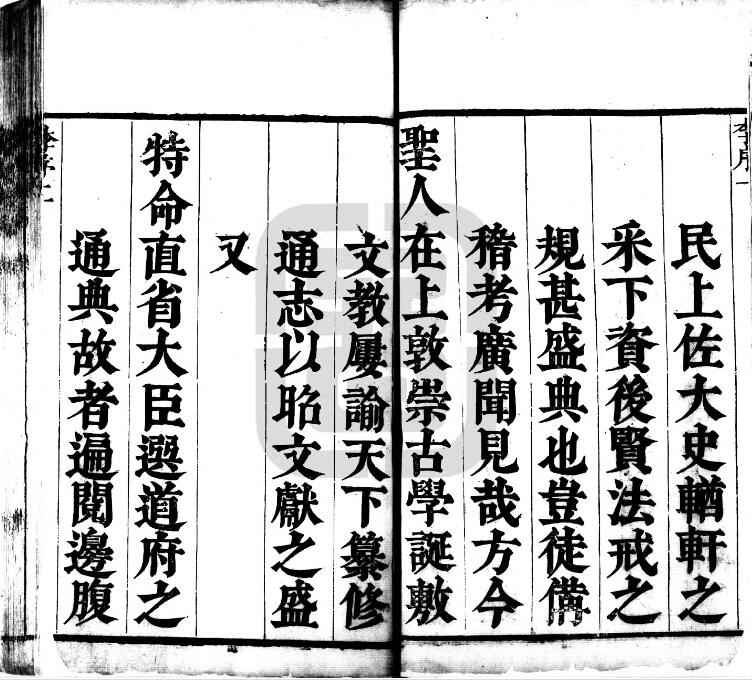 民上佐大史輶軒之
采下資後賢法戒之
規甚盛典也豈徒備
稽考廣聞見哉方今
聖人在上敦崇古學誕敷
文教屢諭天下纂修
通志以昭文獻之盛
又
特命直省大臣選道府之
通典故者遍閱邊腹